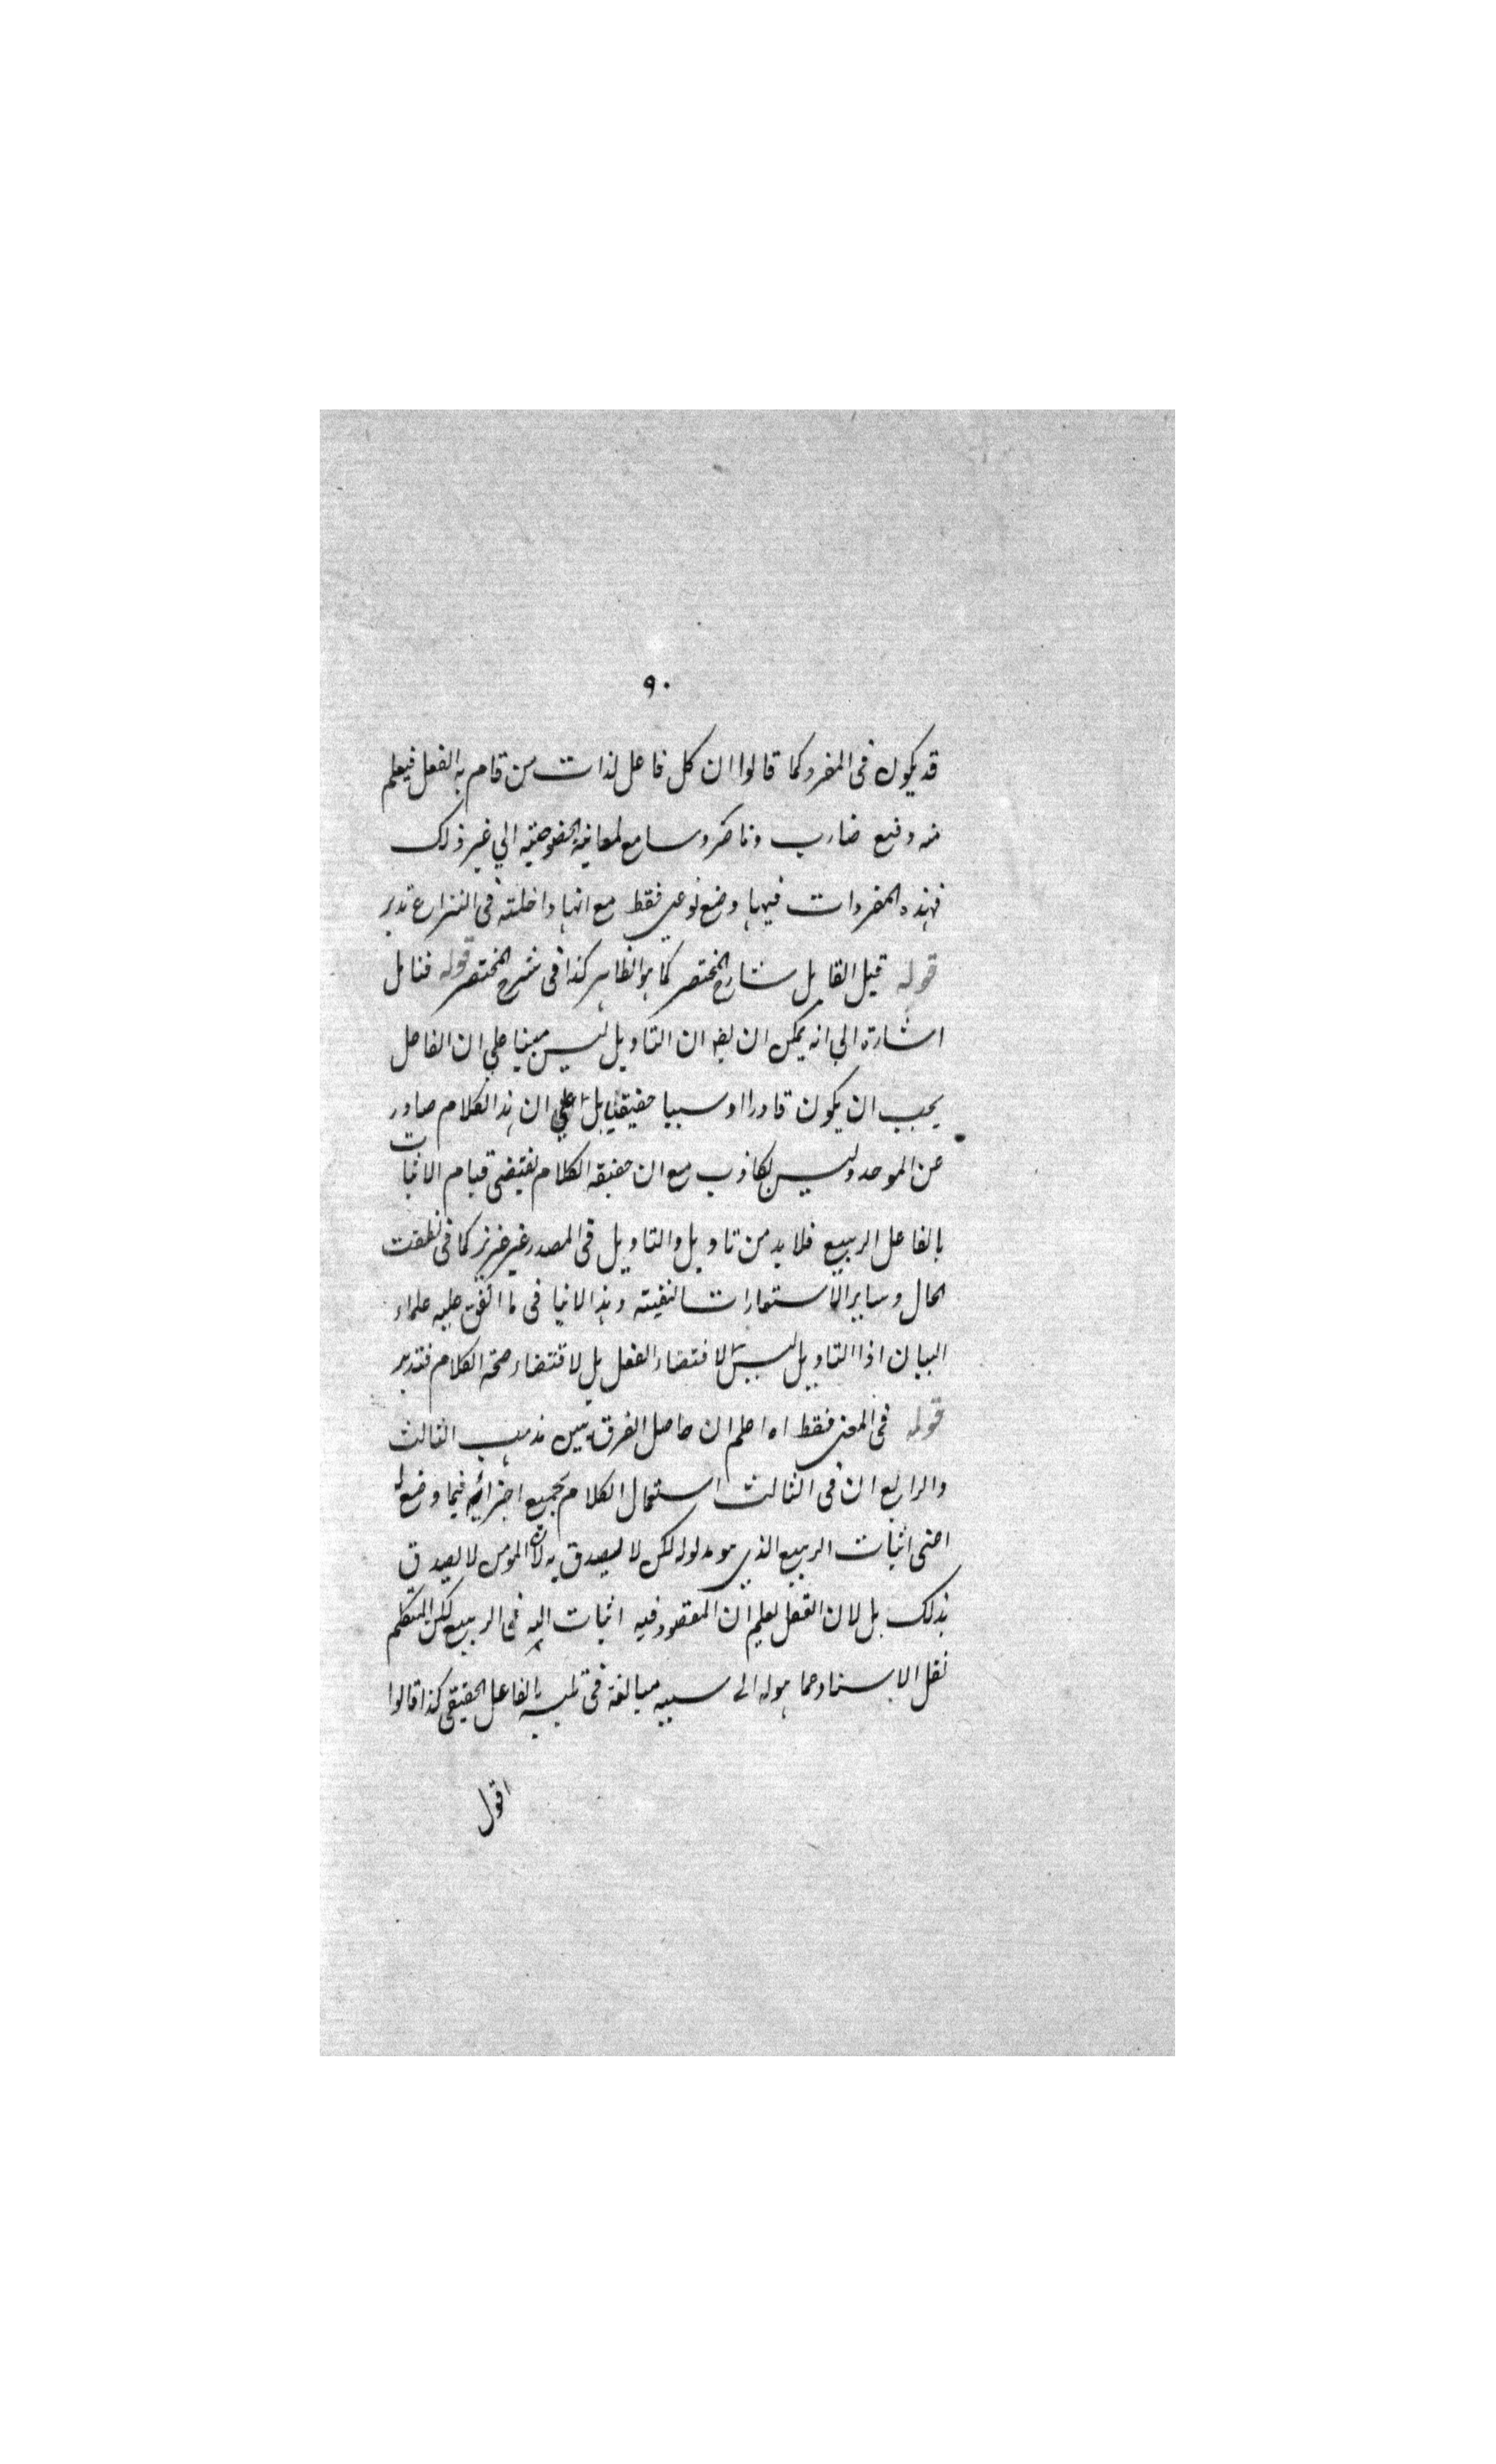 ٩٠
قد يكون فى المفرد كما قالوا ان كل فاعل لذات من قام به الفعل فيعلم
منه وضع ضارب وناصر وسامع لمعانيه المخصوصة الي غير ذلك
فهذه المفردات فيها وضع نوعي فقط مع انها داخلة فى النزاع تدبر
قوله قيل القايل شارح المختصر كما هو الظاهر كذا فى شرح المختصر قوله فتامل
اشارة الي انه يمكن ان يقه ان التاويل ليس مبنيا علي ان الفاعل
يجب ان يكون قادرا او سببا حقيقيا بل علي ان هذا الكلام صادر
عن الموحد وليس بكاذب مع ان حقيقة الكلام يقتضى قيام الانبات
بالفاعل الربيع فلا بد من تاويل والتاويل فى المصدر غير عزيز كما فى نطقت
الحال وساير الاستعارات التبعية وهذا لا ينافى ما اتفق عليه علماء
البيان اذ التاويل ليس لاقتضاء الفعل بل لاقتضاء صحة الكلام فتدبر
قوله فى المعنى فقط اه اعلم ان حاصل الفرق بين مذهب الثالث
والرابع ان فى الثالث استعمال الكلام بجميع اجزائه فيما وضع له
اعنى انبات الربيع الذي هو مدلوله لكن لا ليصدق به لان المومن لا يصدق
بذلك بل لان العقل يعلم ان المقصود فيه انبات الله فى الربيع لكن المتكلم
نقل الاسناد عما هو له الى سببه مبالغة فى تلبسه بالفاعل الحقيقى كذا قالوا
اقول